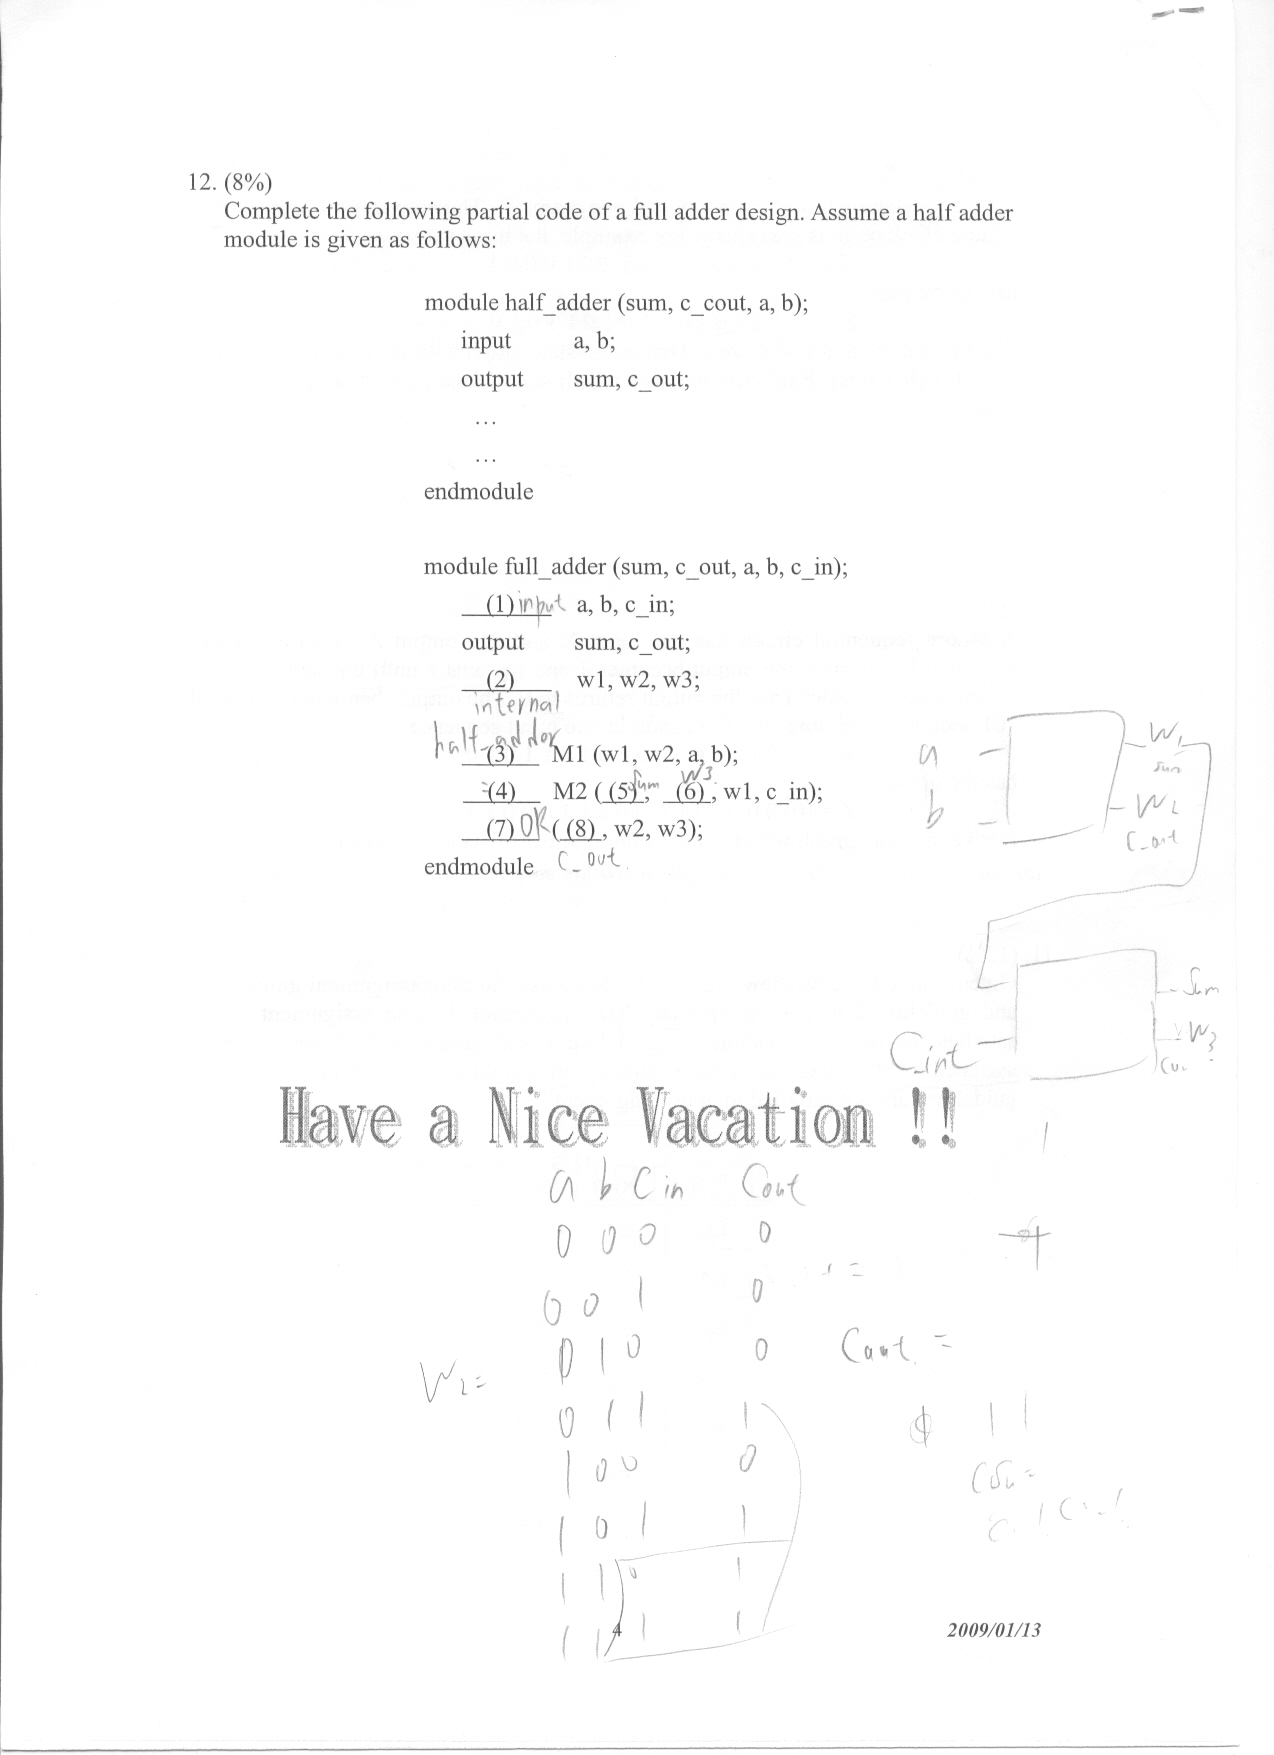 12. (8%)
Complete the following partial code of a full adder design. Assume a half adder
module is given as follows:
module half_adder (sum, c_cout, a, b);
input a, b;
output sum, c_out;
...
...
endmodule
module full_adder (sum, c_out, a, b, c_in);
(1) input a, b, c_in;
output sum, c_out;
(2) w1, w2, w3;
internal
half-adder
(3) M1 (w1, w2, a, b);
(4) M2 ( (5) sum, (6) W3, w1, c_in);
(7) OR ( (8) , w2, w3);
endmodule c_out
a W1
sum
b W2
C_out
Sum
C_int W3
Have a Nice Vacation !!
a b Cin Cout
0 0 0 0
0 0 1 0
0 1 0 0 Cout =
W2=
0 1 1 1
1 0 0 0
1 0 1 1
1 1 0 1
1 1 1 1
4 2009/01/13